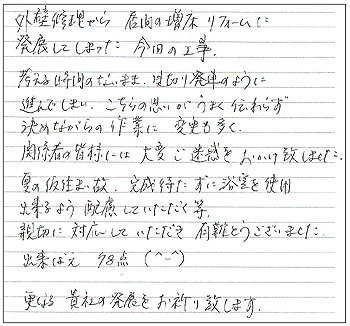 外壁修理から 居間の増床リフォームに
発展してしまった 今回の工事。
考える時間のないまま、見切り発車のように
進んでしまい、こちらの思いがうまく伝わらず
決めながらの作業に 変更も多く、
関係者の皆様には 大変ご迷惑をおかけ致しました。
夏の仮住まい故、完成待たずに浴室を使用
出来るよう 配慮していただく等、
親切に対応していただき 有難とうございました。
出来ばえ 98点 (^-^)
更なる 貴社の発展をお祈り致します。